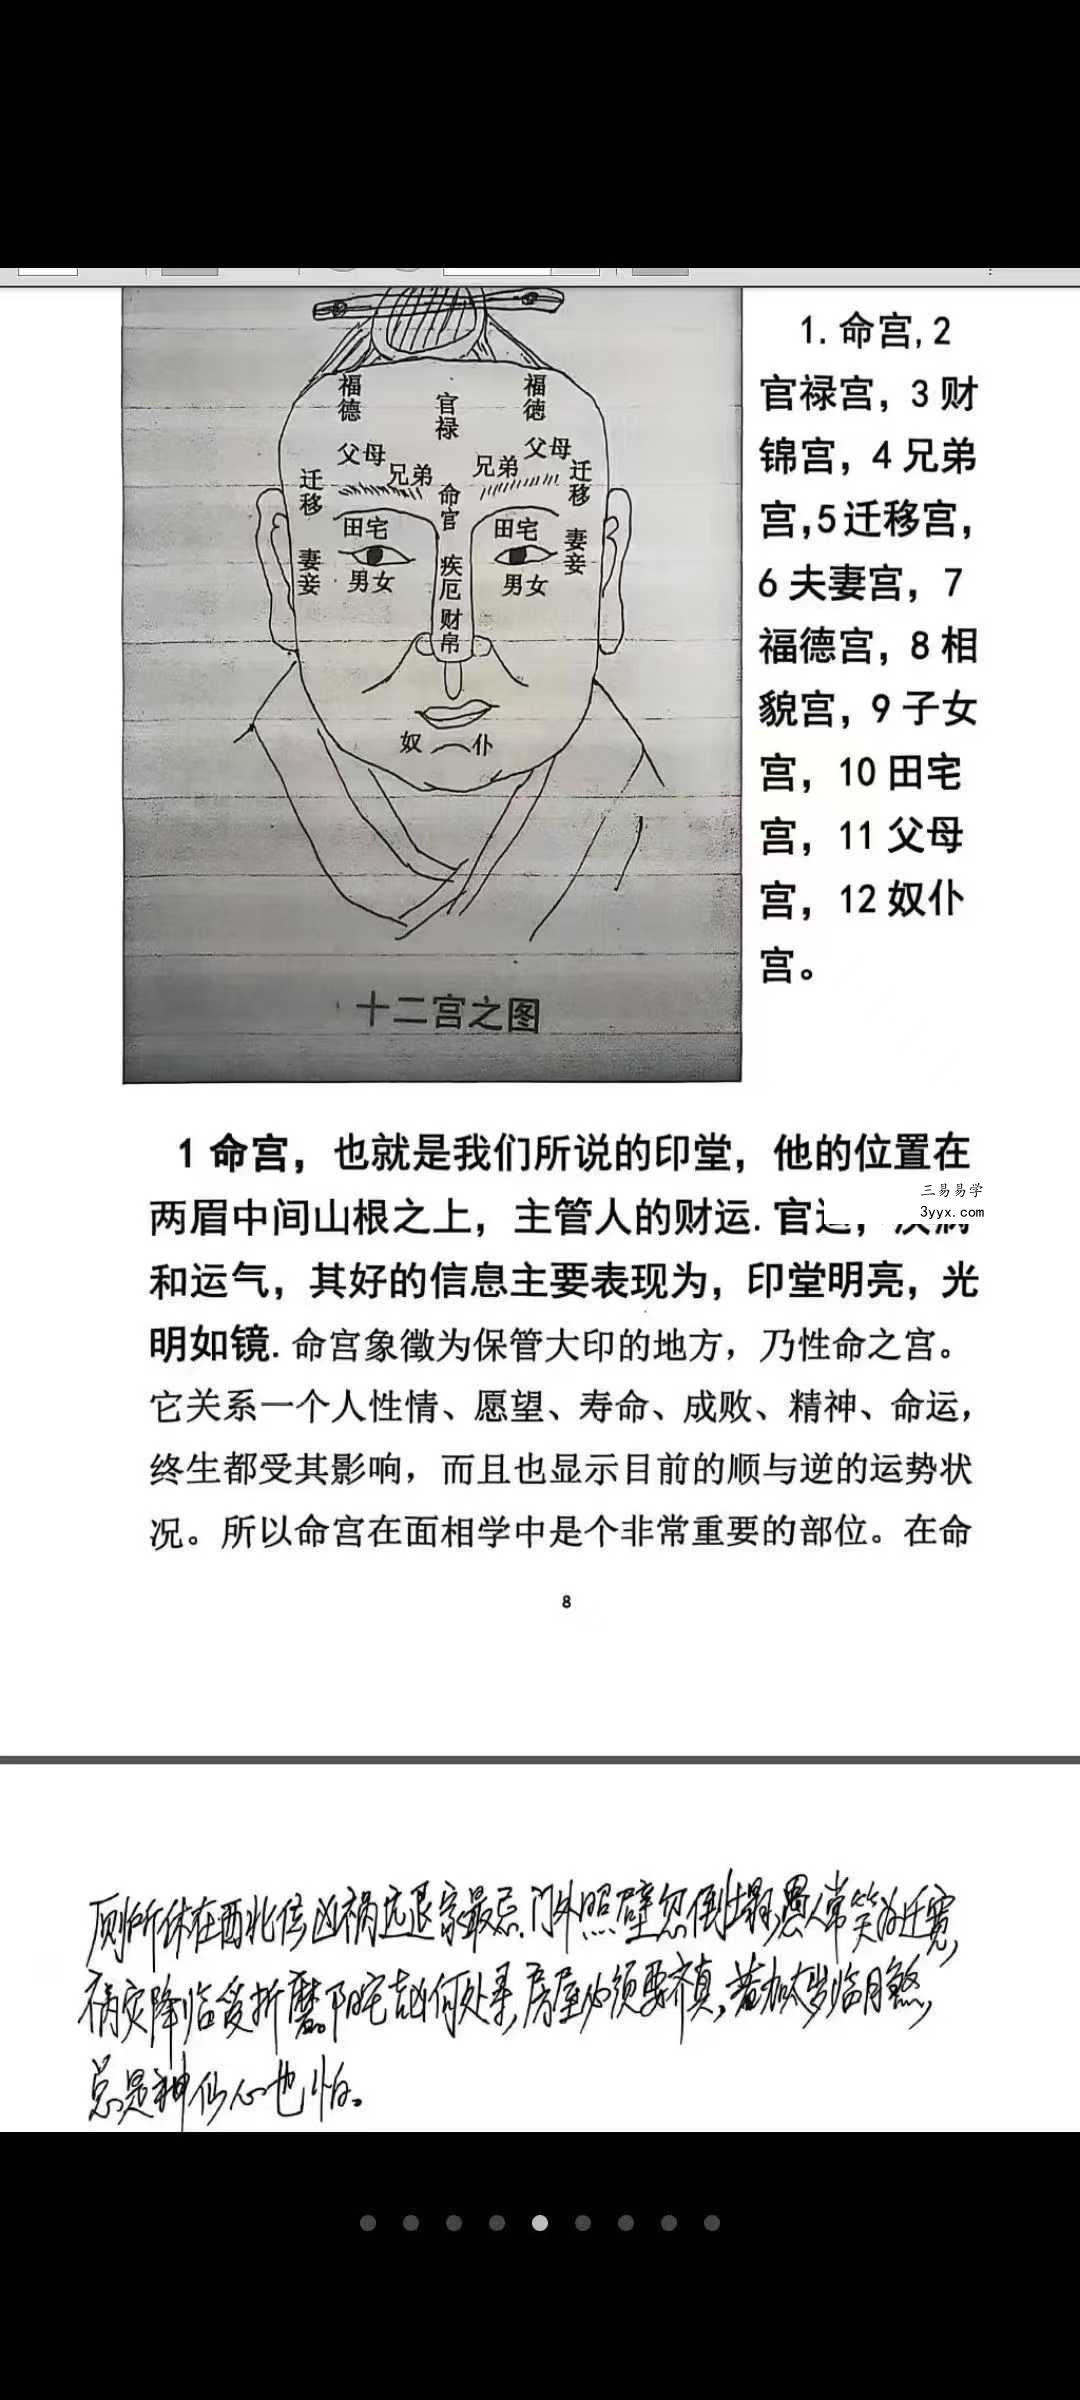 福德
官禄
福德
父母
兄弟
兄弟
父母
迁移
命官
迁移
田宅
田宅
妻妾
疾厄
妻妾
男女
男女
财帛
奴
仆
十二宫之图
1.命宫,2
官禄宫，3财
锦宫，4兄弟
宫,5迁移宫，
6夫妻宫，7
福德宫，8相
貌宫，9子女
宫，10田宅
宫，11父母
宫，12奴仆
宫。
1命宫，也就是我们所说的印堂，他的位置在
三易易学
3yyx.com
两眉中间山根之上，主管人的财运.官
和运气，其好的信息主要表现为，印堂明亮，光
明如镜.命宫象徵为保管大印的地方，乃性命之宫。
它关系一个人性情、愿望、寿命、成败、精神、命运，
终生都受其影响，而且也显示目前的顺与逆的运势状
况。所以命宫在面相学中是个非常重要的部位。在命
8
厕所休在西北位,凶祸退家最忌.门外照壁忽倒塌,愚人常笑为迁宽,
祸灾降临受折磨.阳宅吉凶何处寻,房屋必须要齐真,若加太岁临月煞,
总是神仙心也怕。